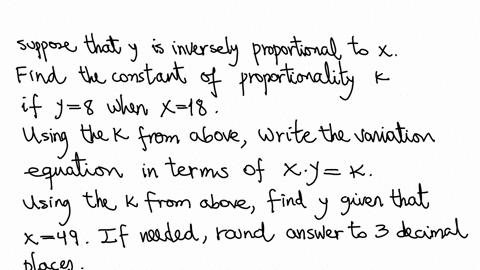 suppose that y is inversely proportional to x.
Find the constant of proportionality k
if y=8 when x=18.
Using the k from above, write the variation
equation in terms of x·y=k.
Using the k from above, find y given that
x=49. If needed, round answer to 3 decimal
places.